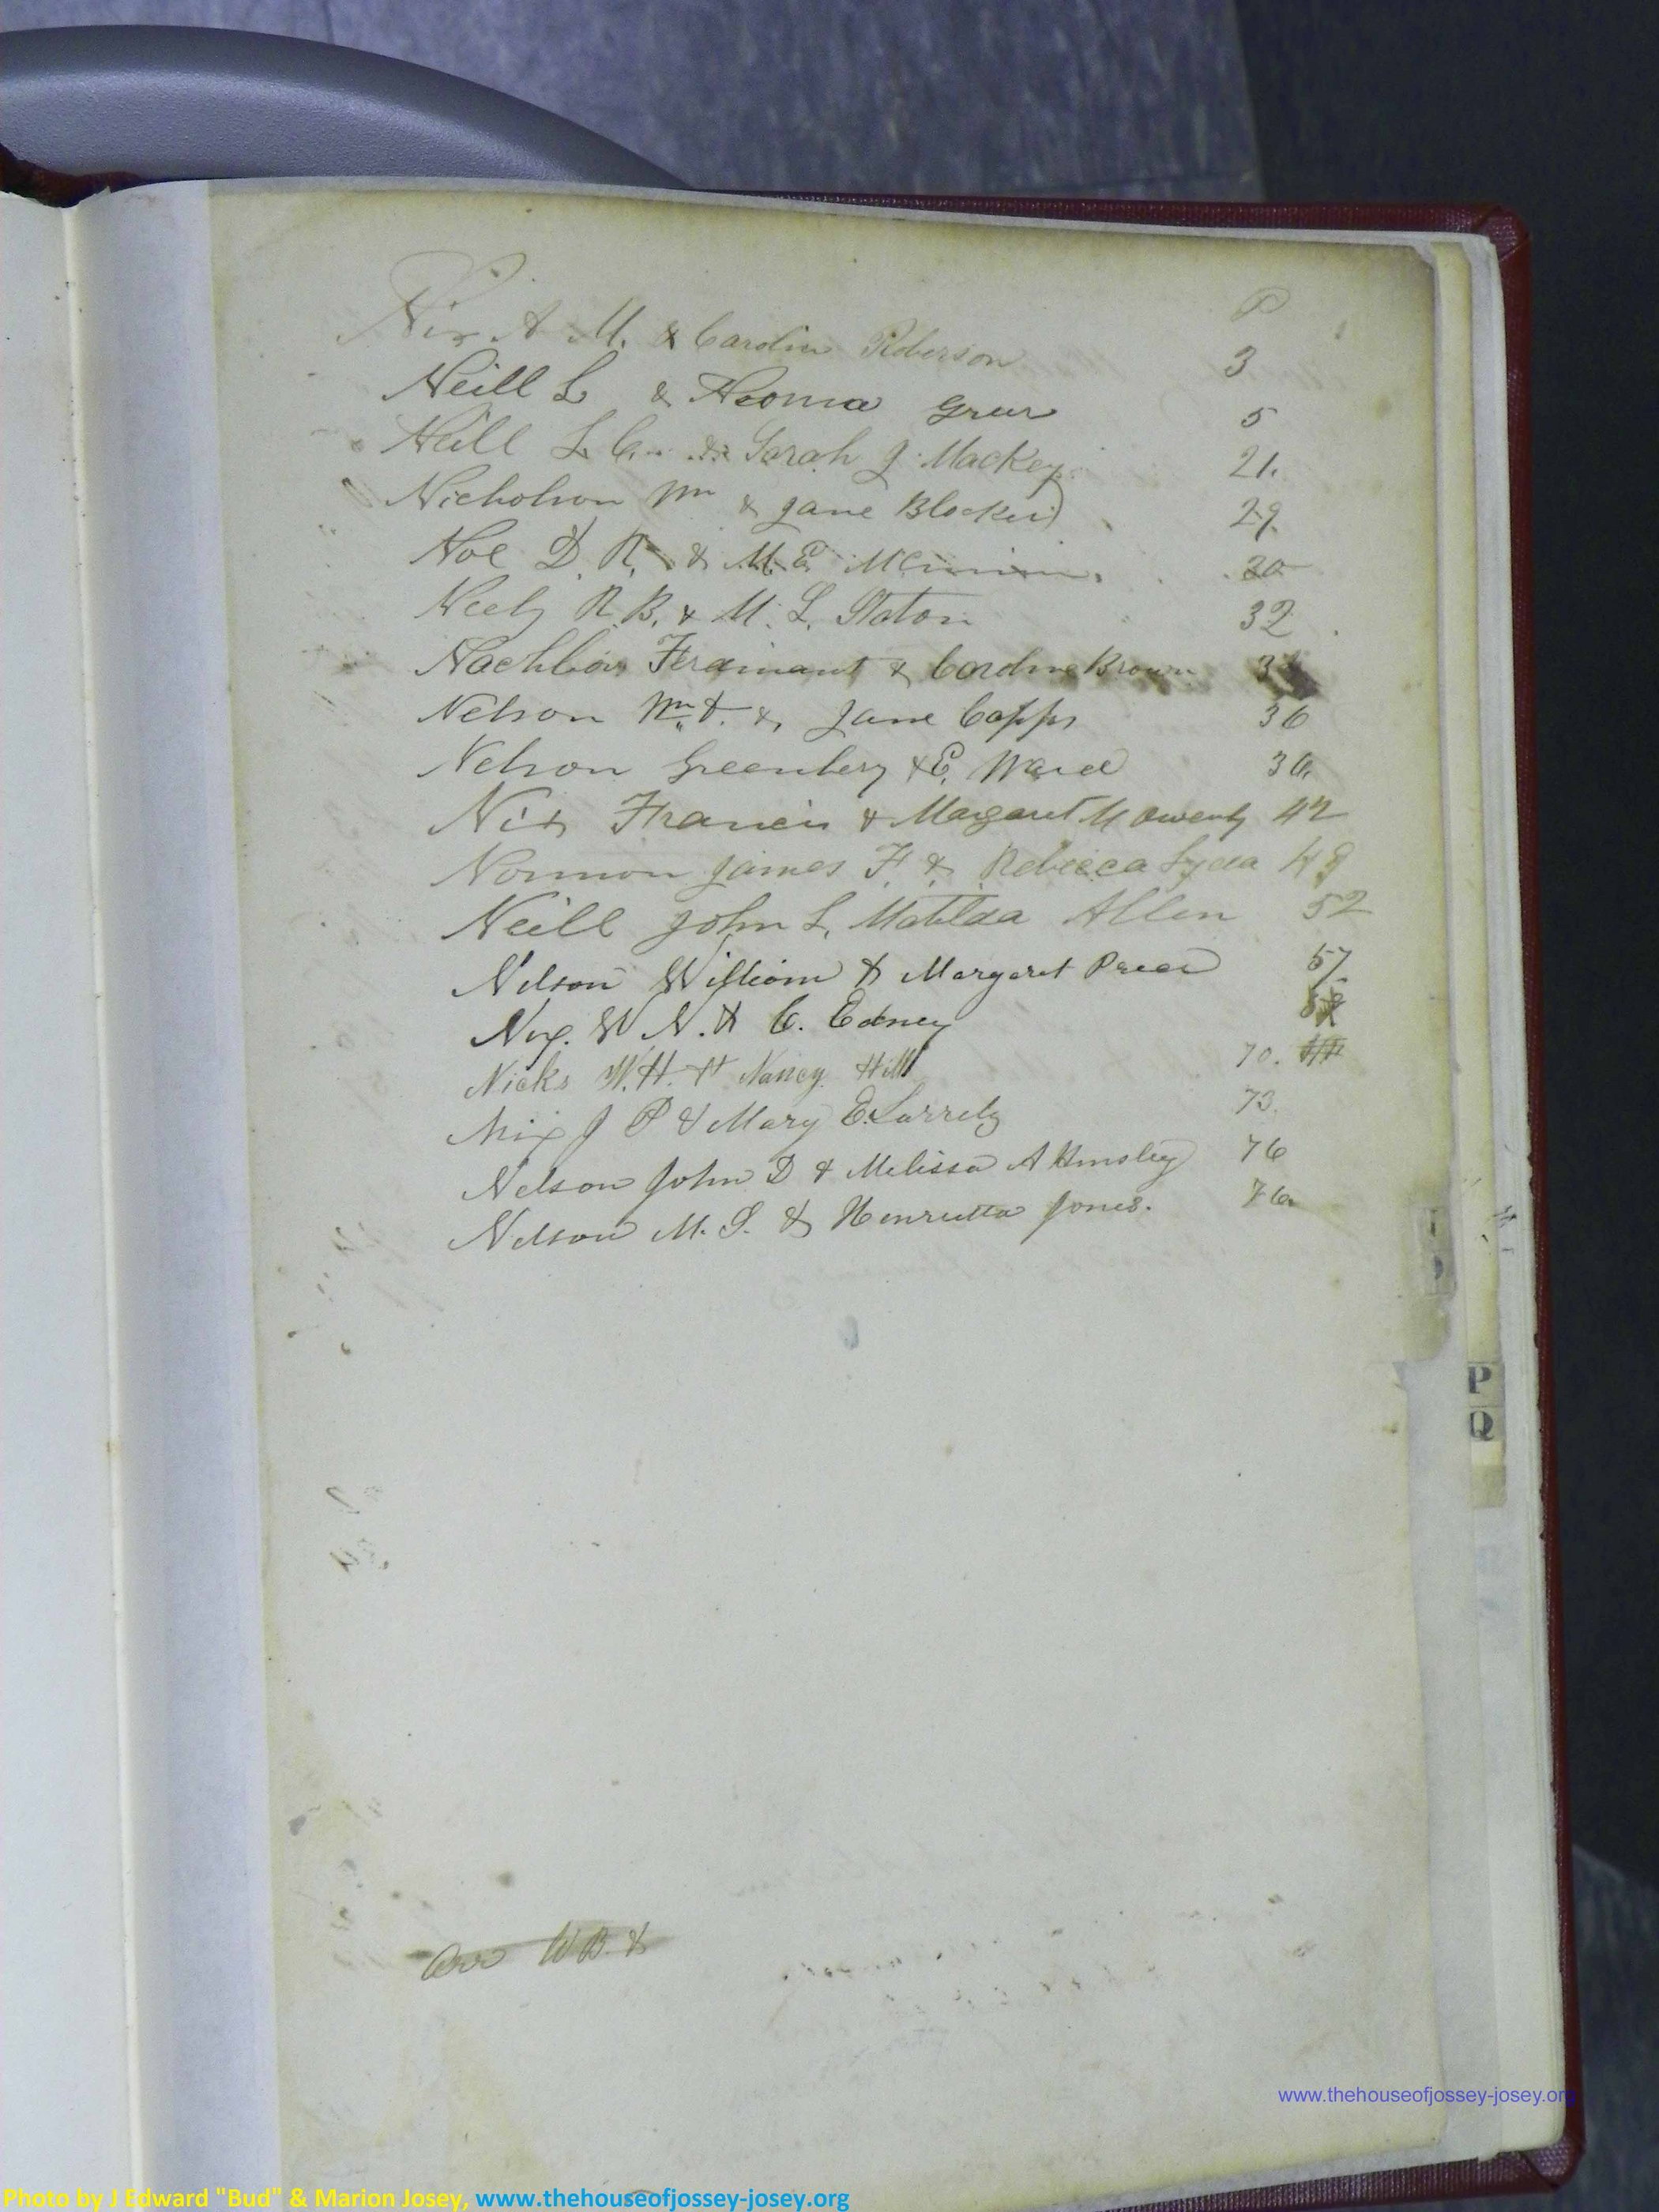 P
Nix A M. & Carolin Roberson 3
Neill L & Neoma Greer 5
Neill L. C. & Sarah J Mackey 21.
Nicholson Wm & Jane Blocker 29
Noe D. R. & M. E. 30
Neely R. B. & M. L. Staton 32
Ferdinant & Caroline Brown
Nelson Wm & Jane Capps 36
Nelson Greenbery & E. Ward 36
Nix Francis & Margaret M Owenby 42
Norman James F. & Rebecca Lyda 48
Neill John L. Matilda Allen 52
Nelson William & Margaret 57
Nix. W N. & C. Edney
Nicks W. H. & Nancy Hill 70.
Nix J P & Mary E. 73.
Nelson John D & Melissa A Hmsley 76
Nelson M. S. & Henrietta Jones. 76
W B. &
P
Q
www.thehouseofjossey-josey.org
Photo by J Edward "Bud" & Marion Josey, www.thehouseofjossey-josey.org